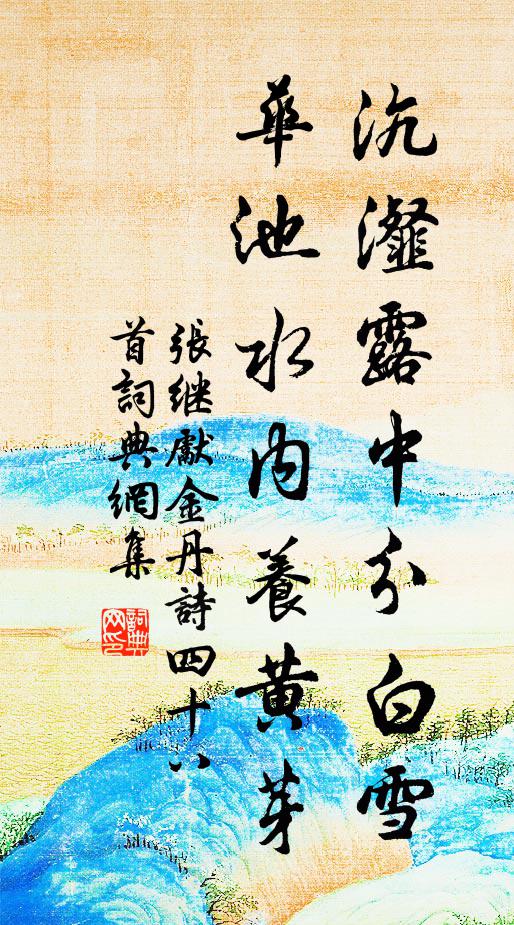 沆瀣露中分白雪
華池水内養黄芽
張継獻金丹詩四十八
首詞典網集
詞典
网印